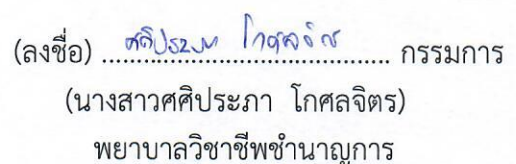 (ลงชื่อ) ศศิประภา โกศลจิตร กรรมการ
(นางสาวศศิประภา โกศลจิตร)
พยาบาลวิชาชีพชำนาญการ